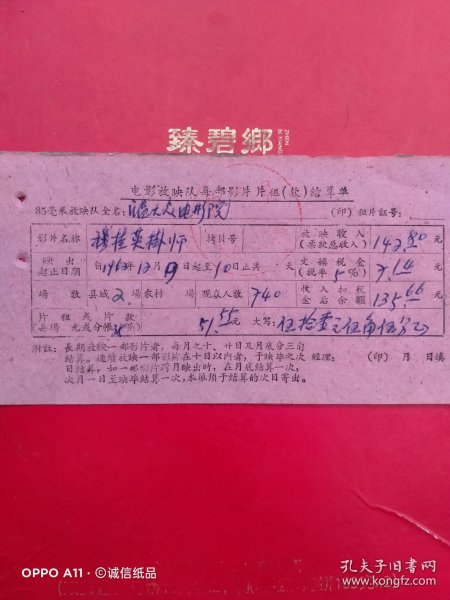 臻碧鄉
ZHEN
BI XIANG
电影放映队每部影片片租(款)结算单
35毫米放映队全名： 大众电影院 (印) 租片証号：
影片名称 穆桂英掛帅 拷貝号 放映收入(票款总收入) 142.80 元
映出起止日期 自1962年12月9日起至10日止共 天 文娱税金(税率5%) 7.14 元
場数 县城2場农村 場 观众人数 740 收入扣税金后余額 135.66 元
片租或片款(每場 元或分帳 %) 51.55元 大写：伍拾壹元伍角伍分
附註：長期放映一部影片者，每月之十、廿日及月底分三旬
結算。連續放映一部影片在十日以內者，于映毕之次 經理： (印) 月 日填
日結算，如一部影片跨月映出时，在月底結算一次，
次月一日至映毕結算一次，本单須于結算的次日寄出。
OPPO A11 · ©诚信纸品
孔夫子旧书网